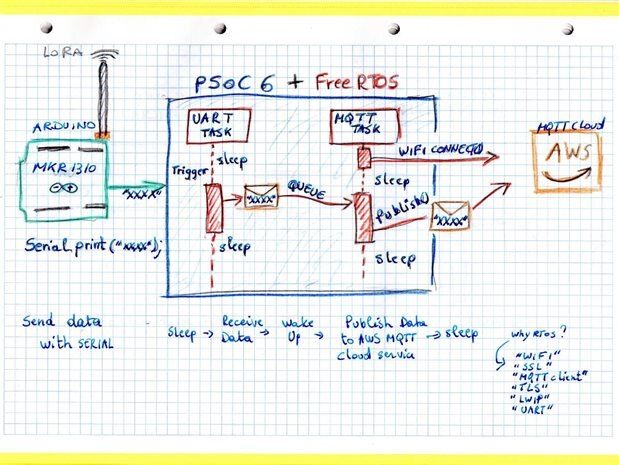 LORA
PSoC 6 + FreeRTOS
ARDUINO
MKR1310
UART
TASK
MQTT
TASK
MQTT Cloud
AWS
sleep
WIFI CONNECTED
Trigger
sleep
"XXXX"
"XXXX"
QUEUE
Publish()
"XXXX"
Serial.print("XXXX");
sleep
sleep
Send data
with SERIAL
Sleep → Receive
Data → Wake
Up → Publish Data
to AWS MQTT
Cloud service → sleep
Why RTOS?
"WiFi"
"SSL"
"MQTT client"
"TLS"
"LWIP"
"UART"